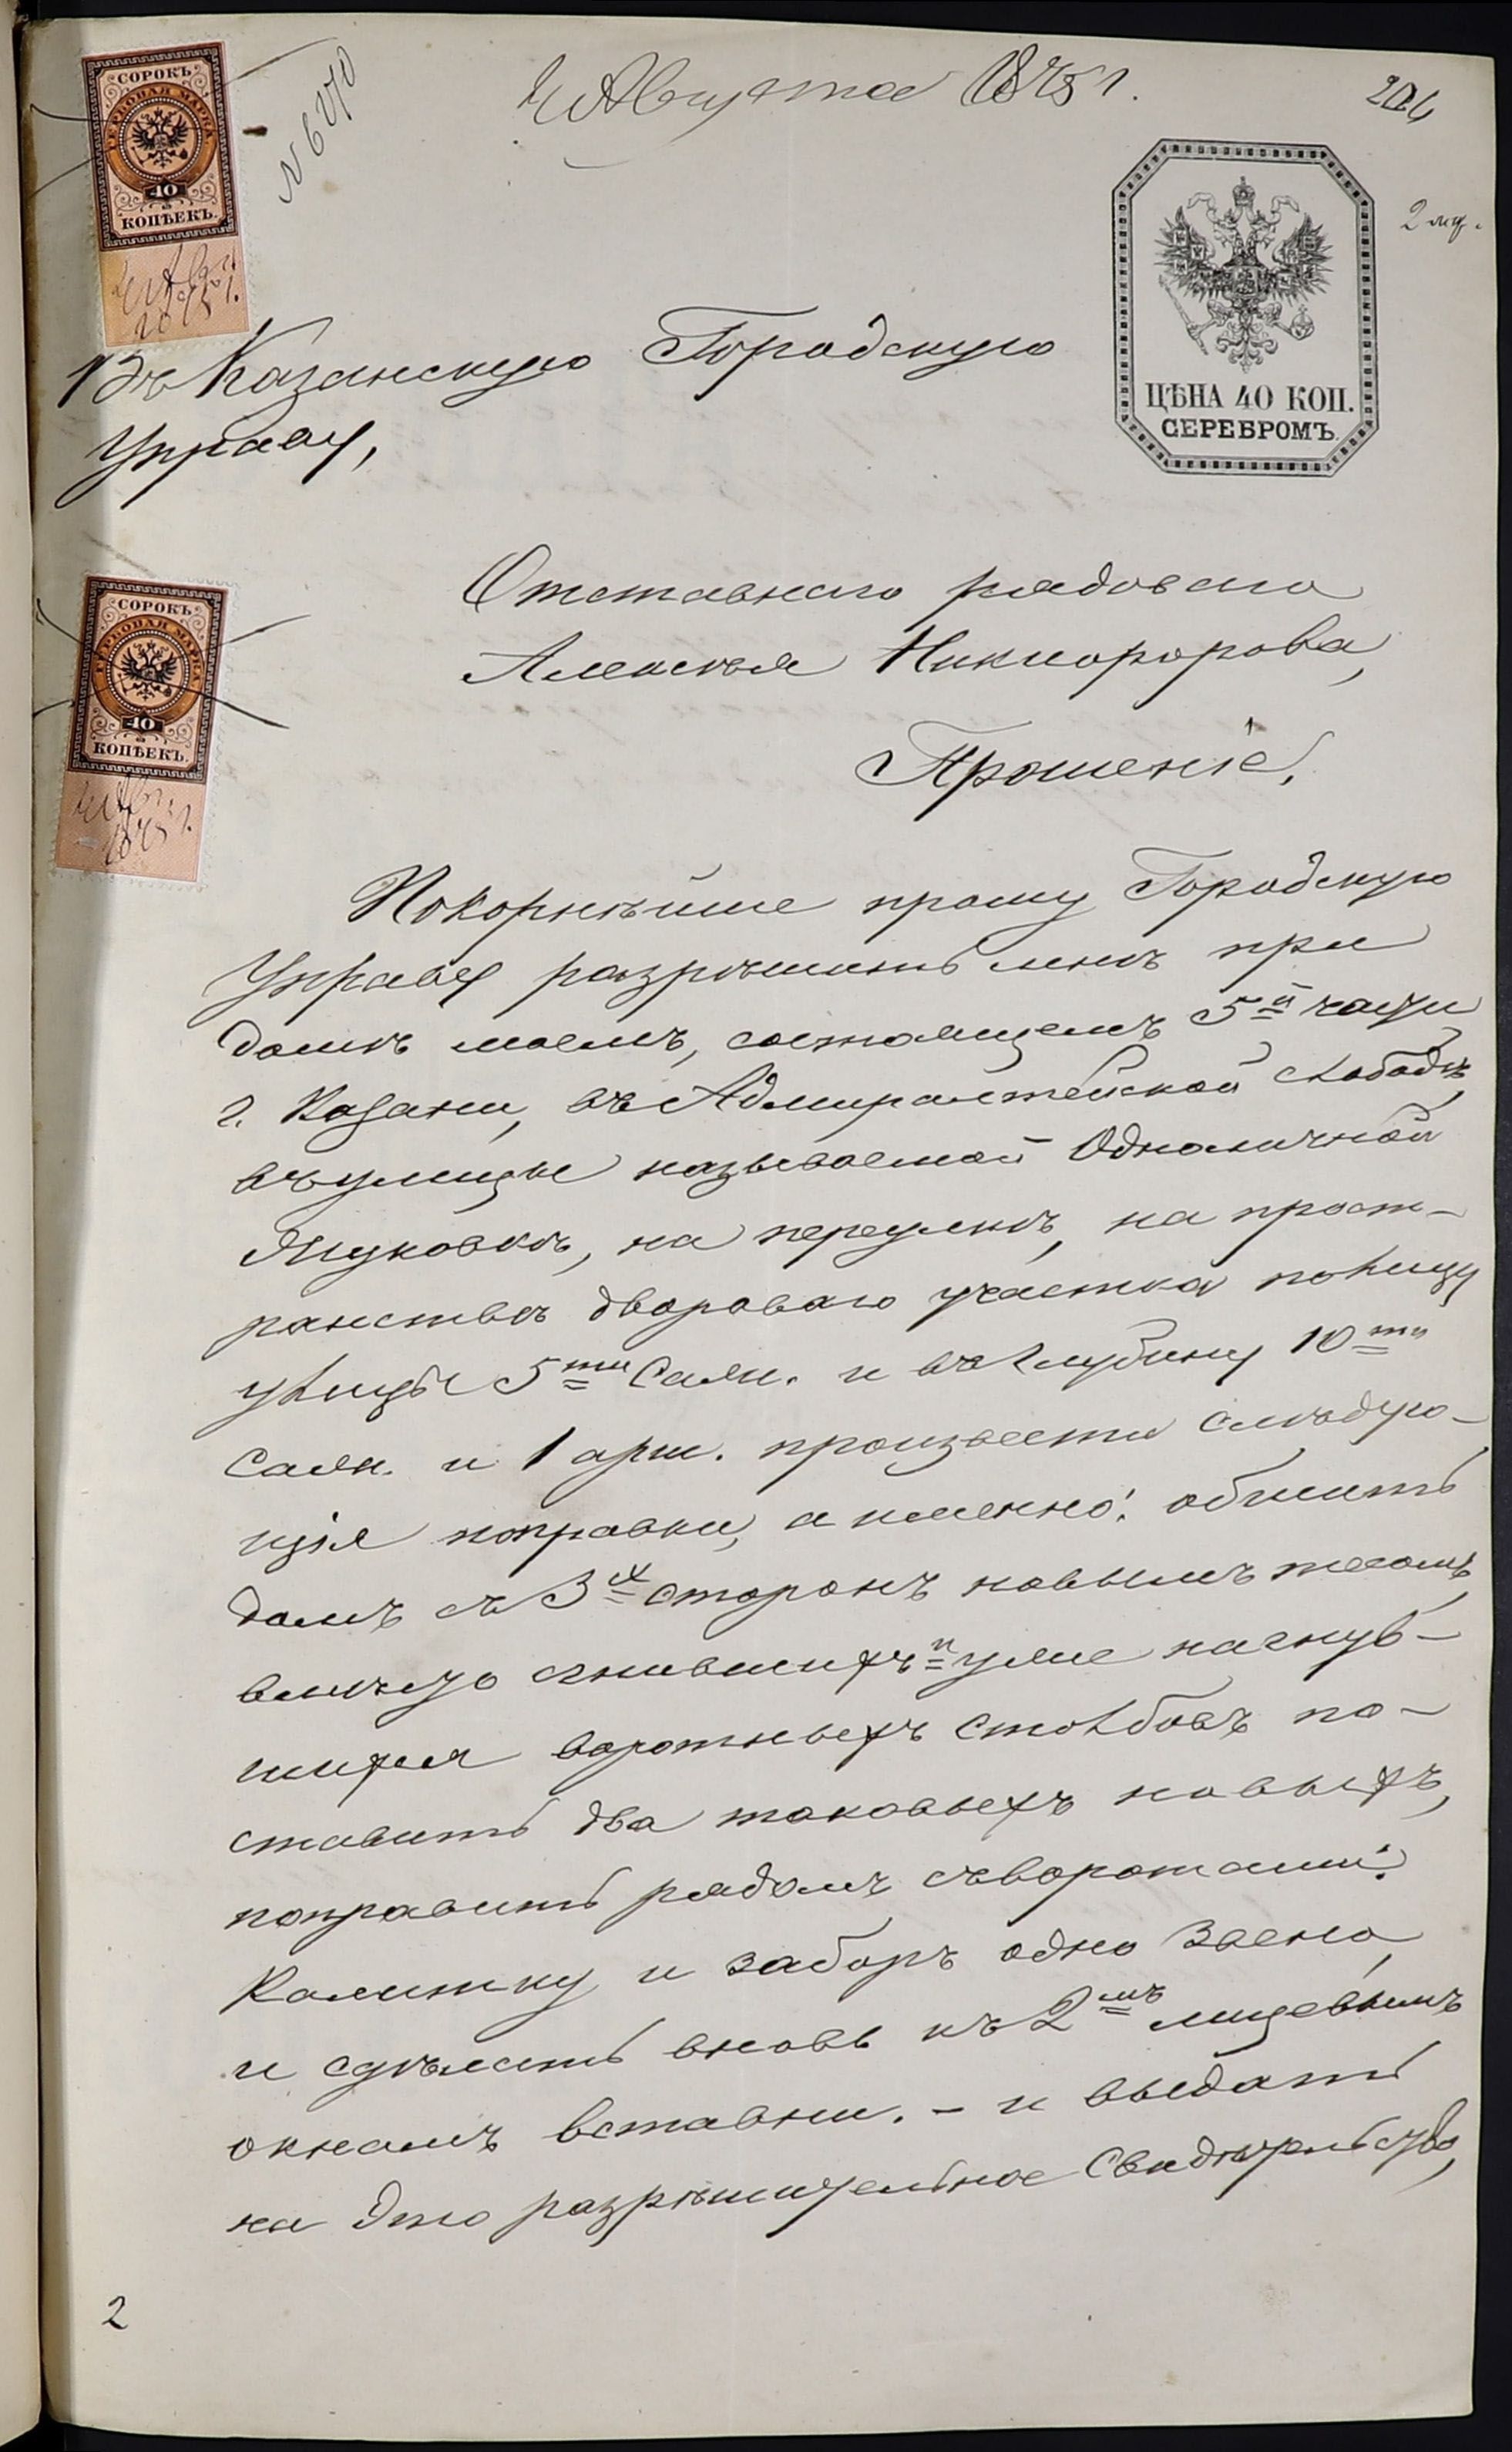 Августа 1875 г.
204
№ 6270
СОРОКЪ
ГЕРБОВАЯ МАРКА
40
КОПѢЕКЪ.
2 мр.
ЦѢНА 40 КОП.
СЕРЕБРОМЪ.
Въ Казанскую Городскую
Управу,
СОРОКЪ
ГЕРБОВАЯ МАРКА
40
КОПѢЕКЪ.
Отставнаго рядоваго
Алексѣя Никифорова,
Прошеніе.
Покорнѣйше прошу Городскую
Управу разрѣшить мнѣ при
домѣ моемъ, состоящемъ 5й части
г. Казани, въ Адмиралтейской слободѣ,
въ улицѣ называемой Одноличной
Жуковкѣ, на переулкѣ, на прост-
ранствѣ двороваго участка по лицу
улицы 5ти Саж. и въ глубину 10ти
Саж. и 1 арш. произвести слѣдую-
щія поправки, а именно: обшить
домъ съ 3х сторонъ новымъ тесомъ,
вмѣсто сгнившихъ и уже нагнув-
шихся воротныхъ столбовъ по-
ставить два таковыхъ новыхъ,
поправить рядомъ съ воротами:
Калитку и заборъ одно звено,
и сдѣлать вновь къ 2мъ лицевымъ
окнамъ вставни. - и выдать
на это разрѣшительное Свидѣтельство,
2